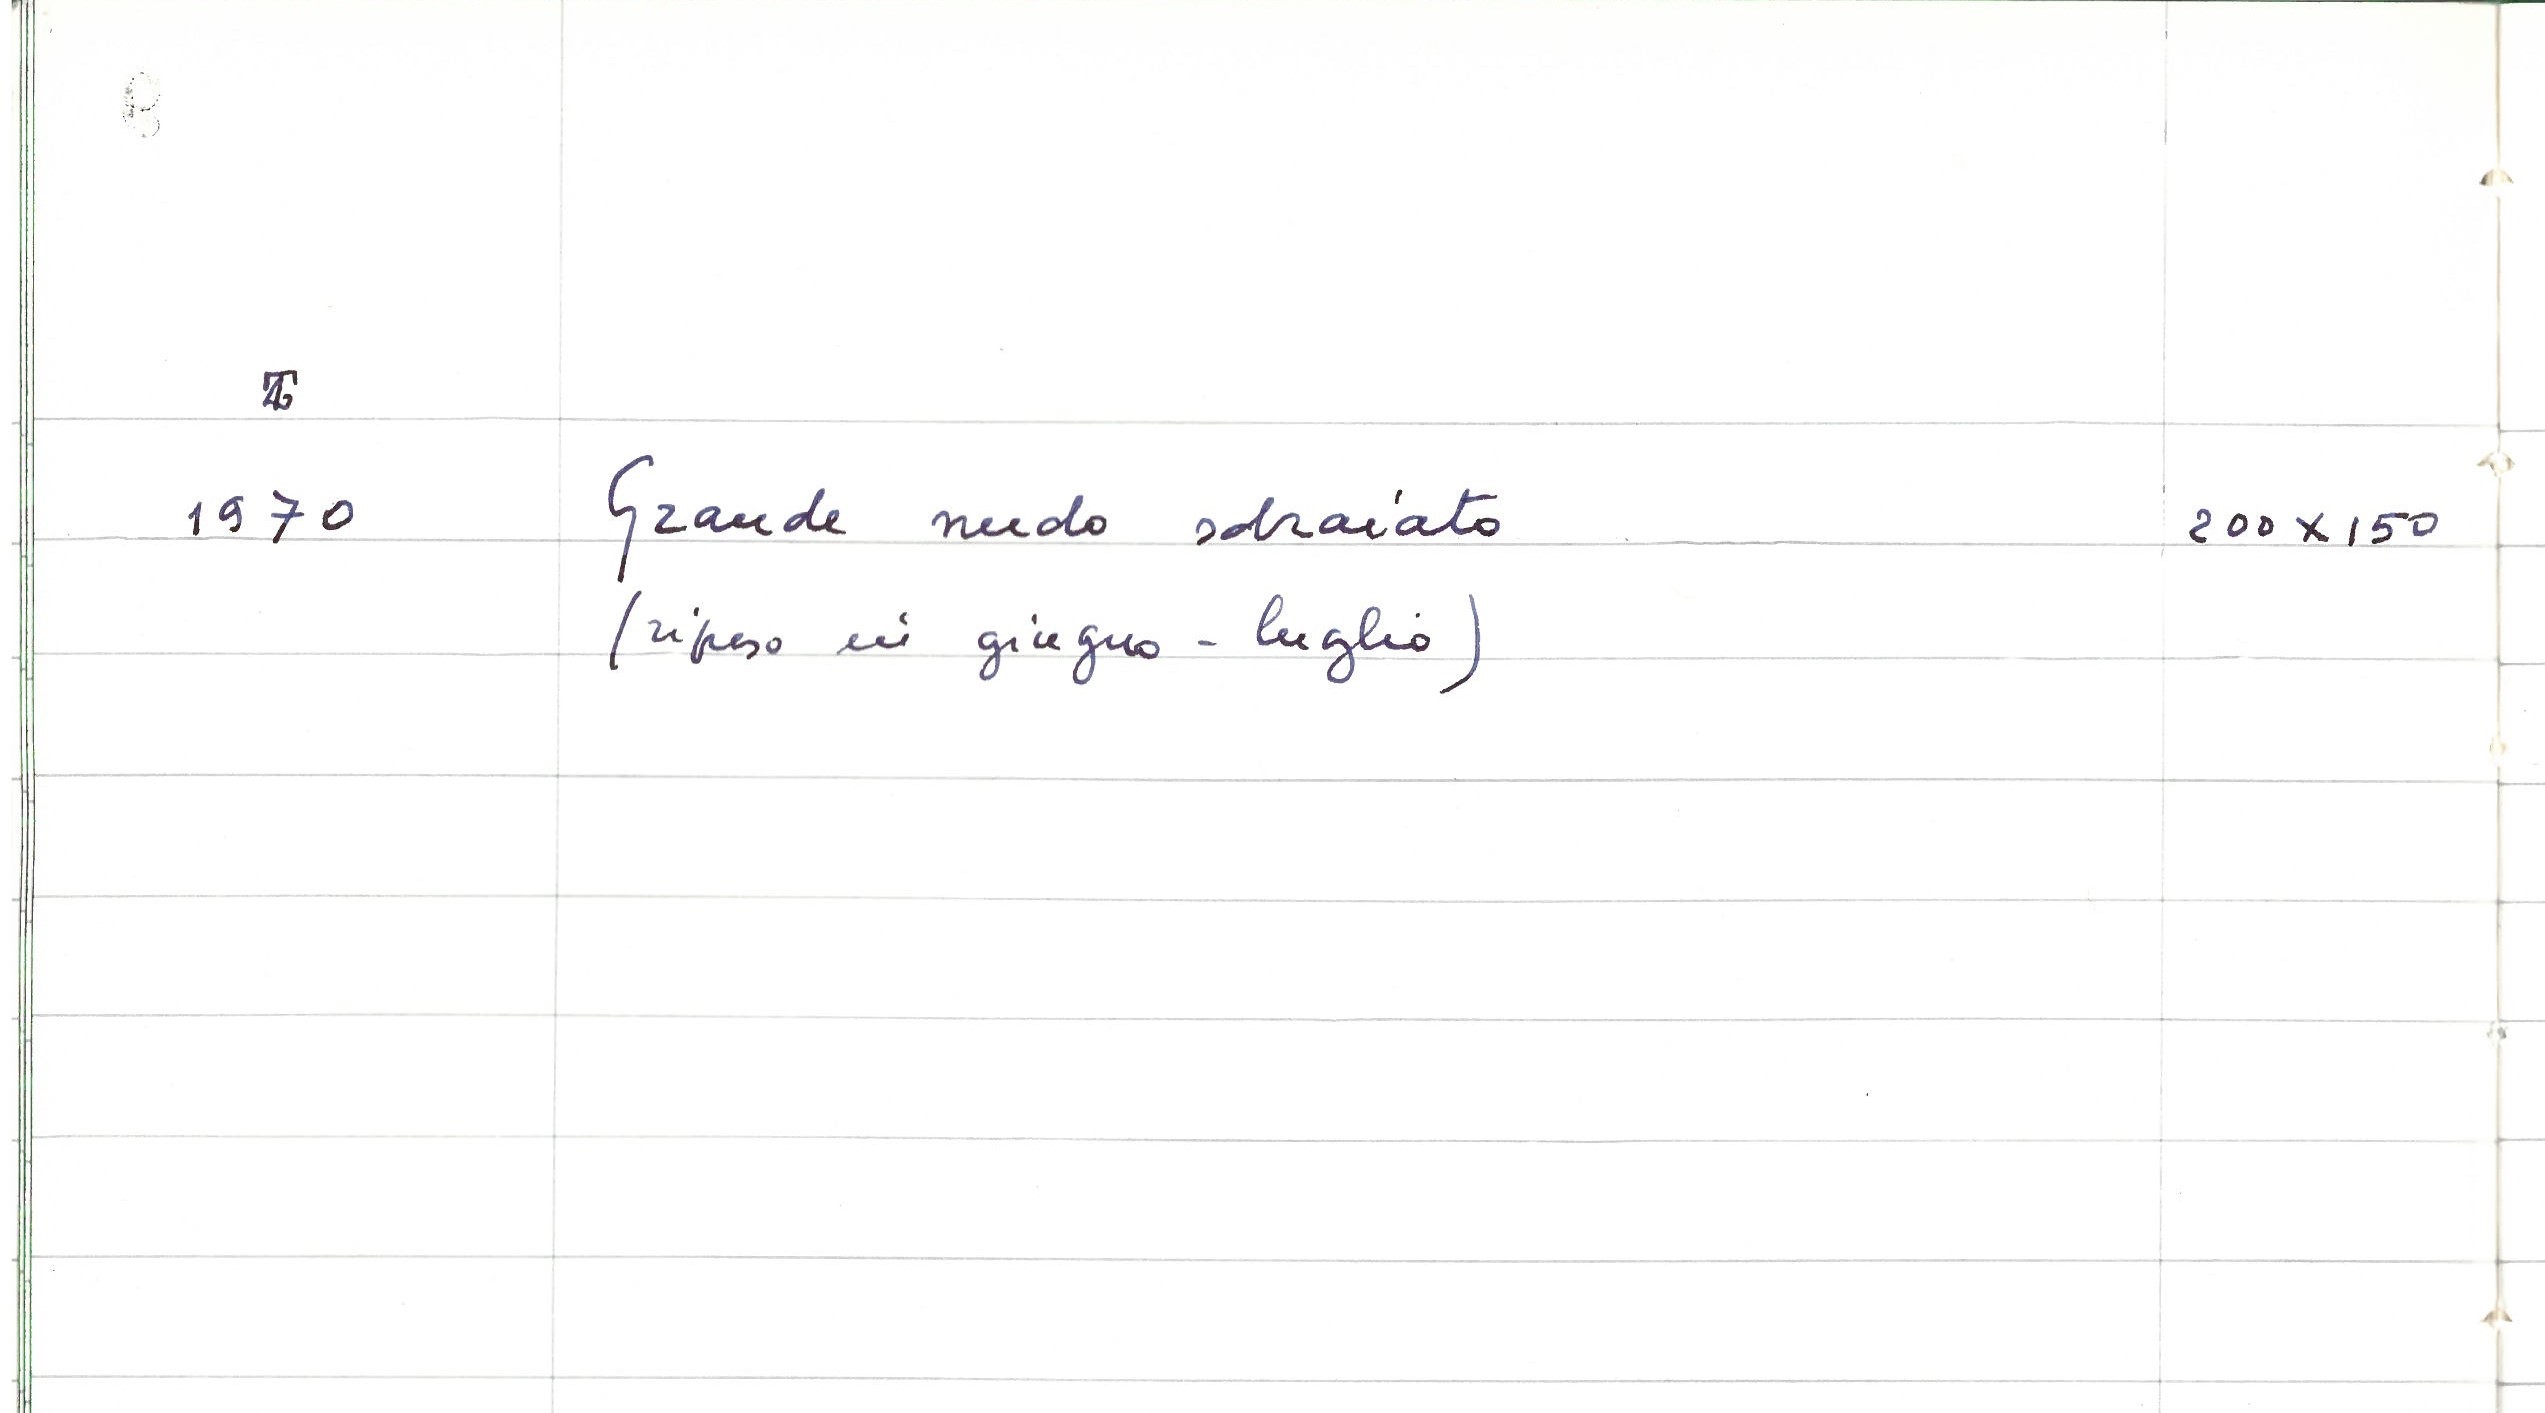 1970 Grande nudo sdraiato 200 x 150
(ripreso in giugno - luglio)